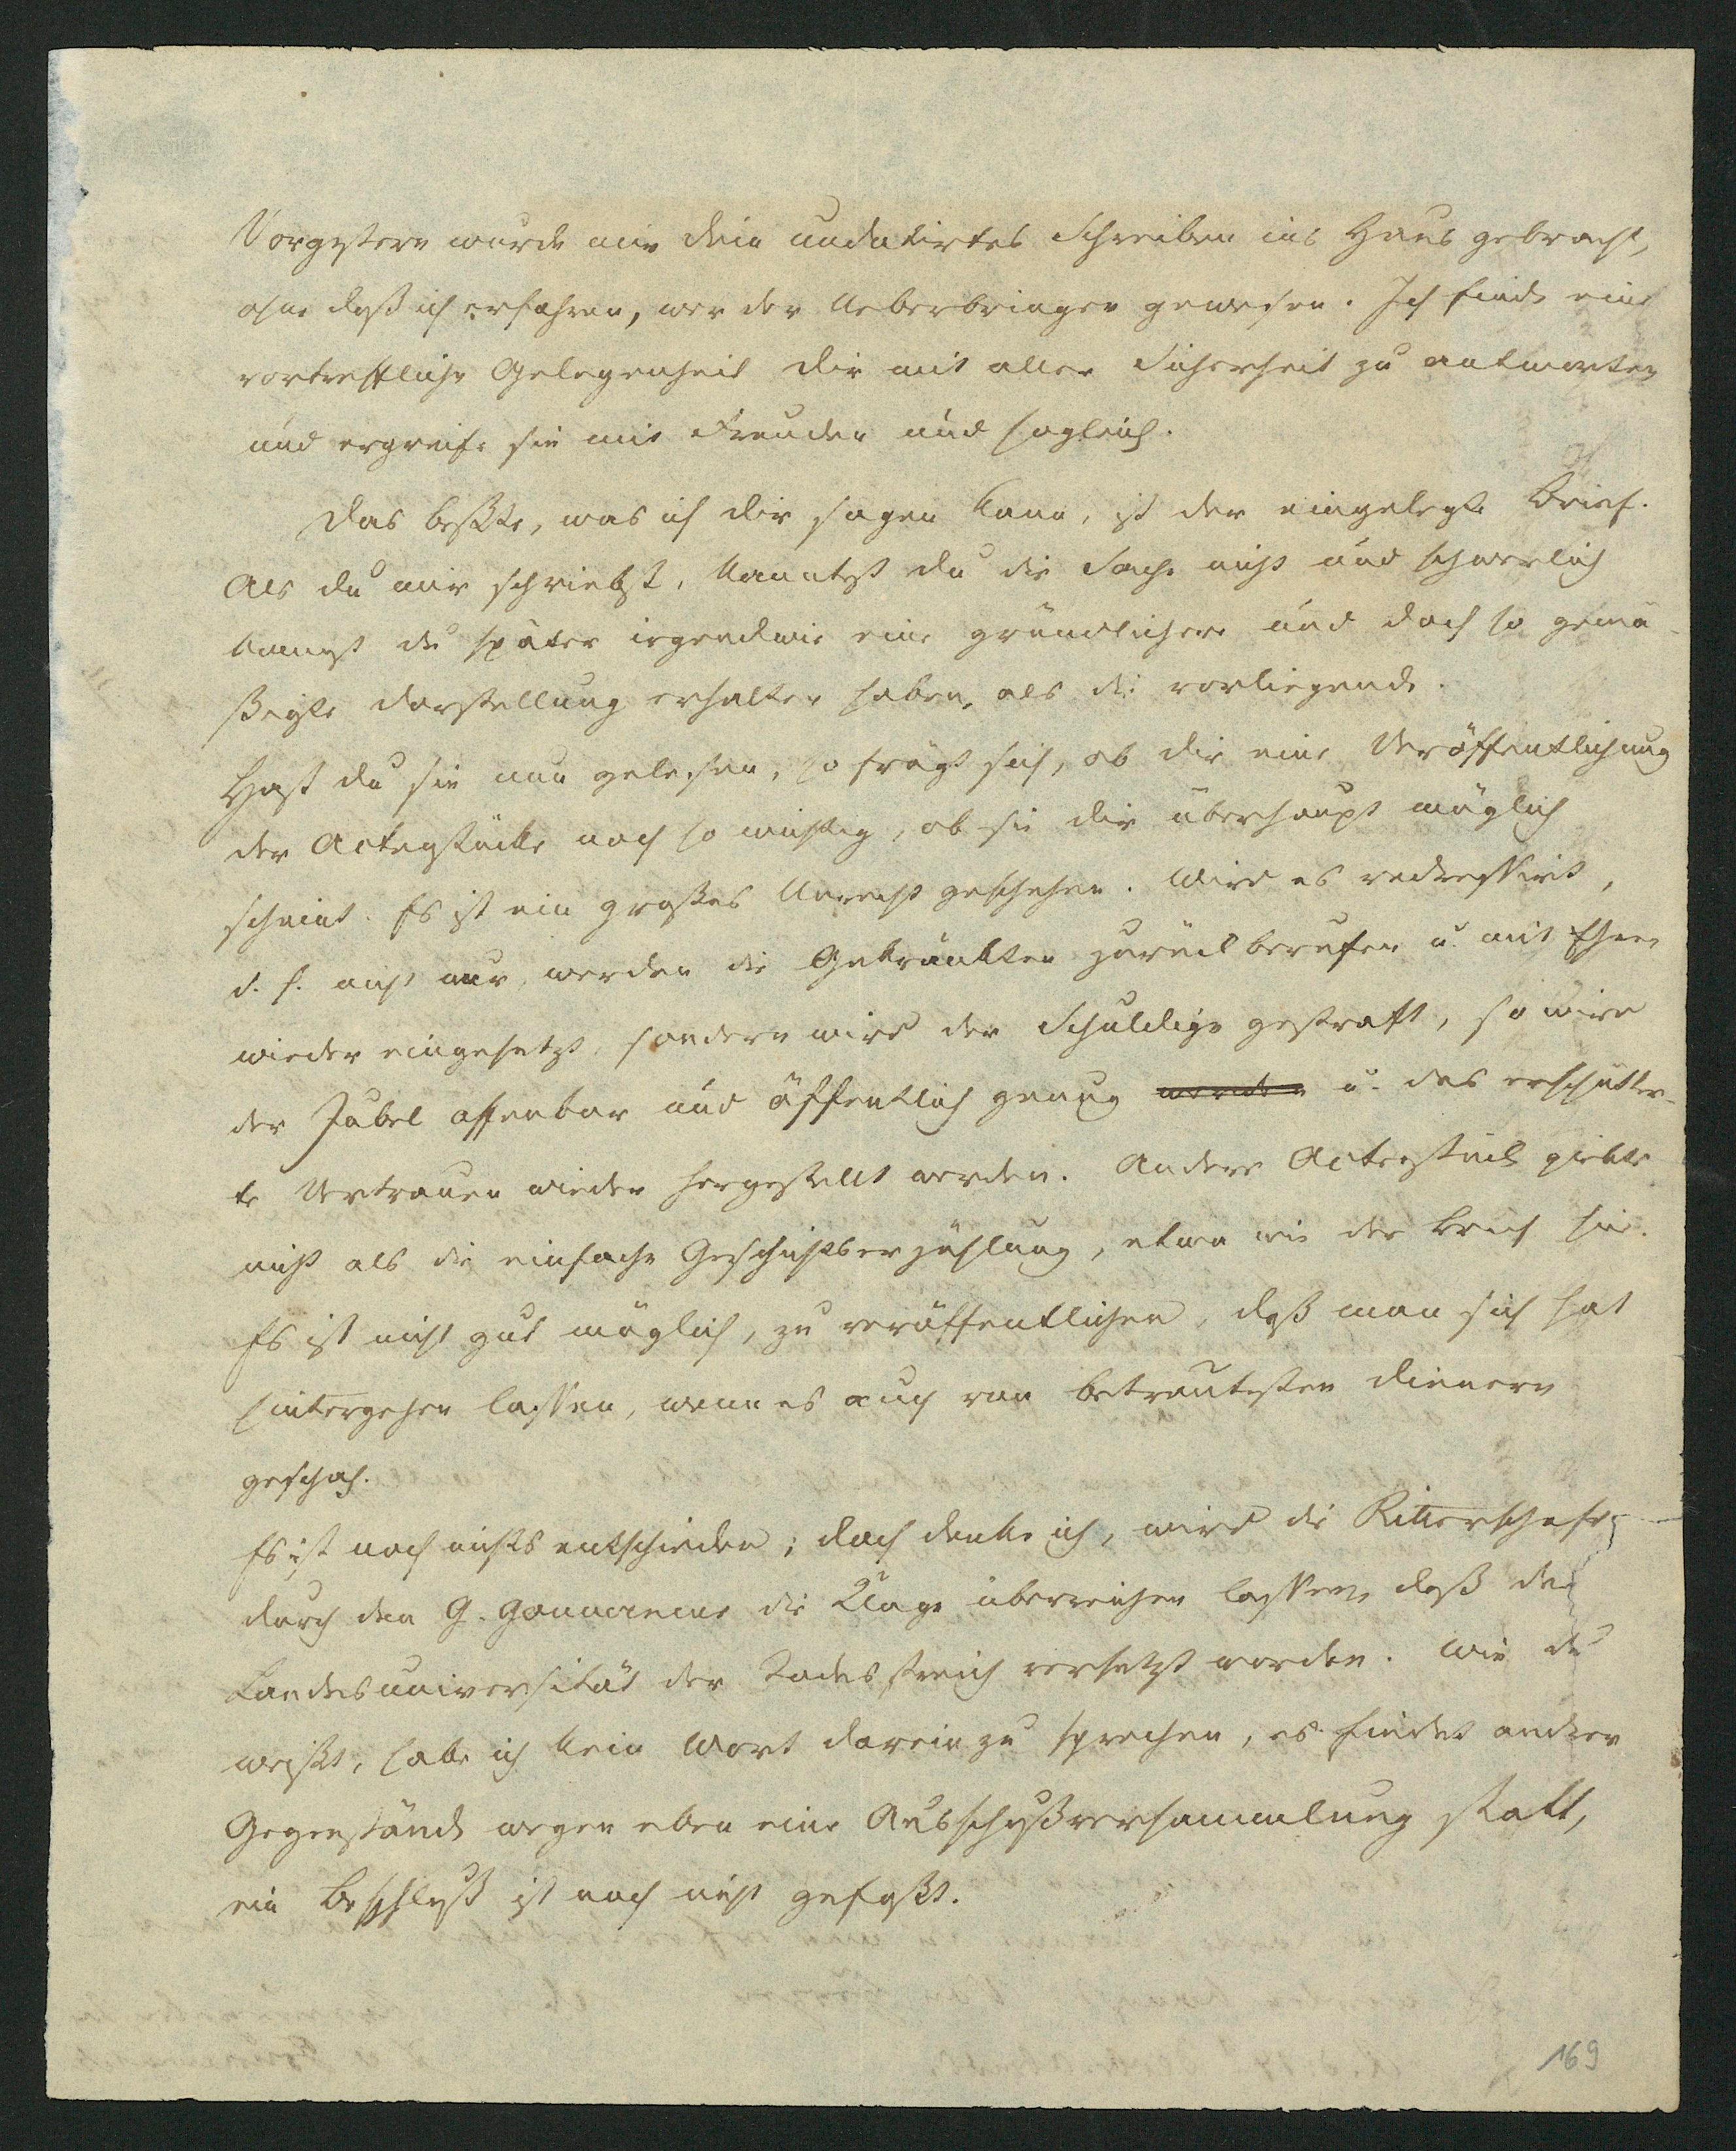 Vorgestern wurde mir dein undatirtes Schreiben ins Haus gebracht,
ohne daß ich erfahren, wer der Ueberbringer gewesen. Ich finde eine
vortreffliche Gelegenheit dir mit aller Sicherheit zu antworten
und ergreife sie mit Freuden und sogleich.
Das beßte, was ich dir sagen kann, ist der eingelegte Brief.
Als du mir schriebst, kanntest du die Sache nicht und schwerlich
kannst du später irgendwie eine gründlichere und doch so gemä-
ßigte Darstellung erhalten haben, als die vorliegende.
Hast du sie nun gelesen, so frägt sich, ob dir eine Veröffentlichung
der Actenstücke noch so wichtig, ob sie dir überhaupt möglich
scheint. Es ist ein großes Unrecht geschehen. Wird es redressirt,
d. h. nicht nur werden die Gekränkten zurückberufen u. mit Ehren
wieder eingesetzt, sondern wird der Schuldige gestraft, so wird
der Jubel offenbar und öffentlich genug werden u. das erschütter-
te Vertrauen wieder hergestellt werden. Andere Actenstücke giebts
nicht als die einfache Geschichtserzählung, etwa wie der Brief hie.
Es ist nicht gut möglich, zu veröffentlichen, daß man sich hat
hintergehen lassen, wenn es auch von betrautesten Dienern
geschah.
Es ist noch nichts entschieden; doch denke ich, wird die Ritterschaft
durch den G. Gouverneur die Klage überreichen lassen, daß der
Landesuniversität der Todesstreich versetzt worden. Wie du
weißt, habe ich kein Wort darein zu sprechen, es findet anderer
Gegenstände wegen eben eine Ausschußversammlung statt,
ein Beschluß ist noch nicht gefaßt.
169